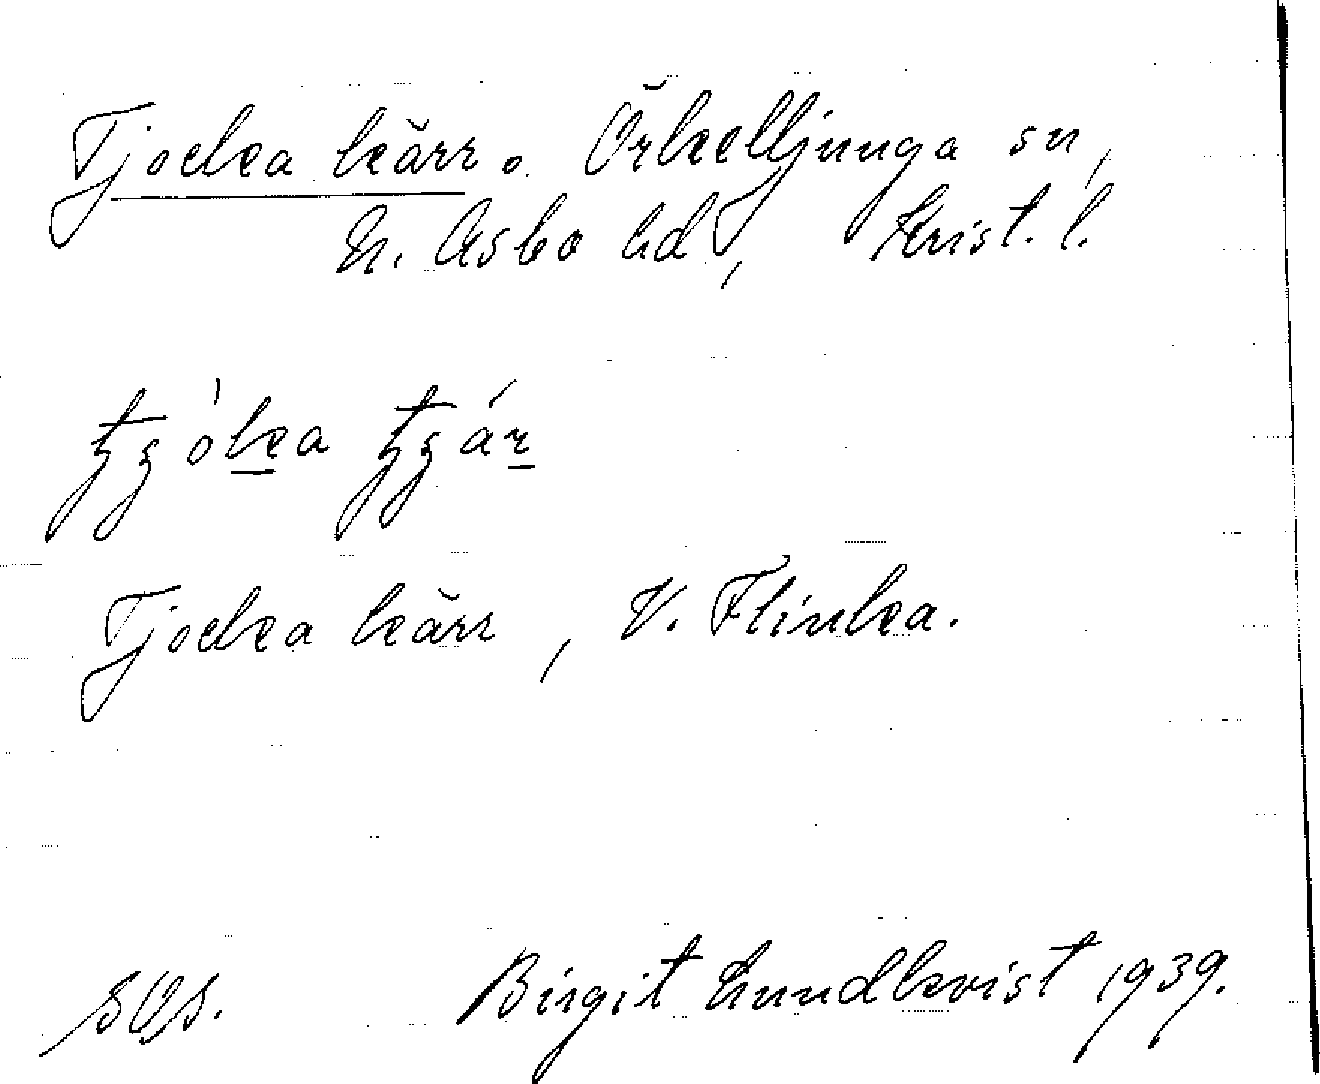 Tjocka kärr. Örkelljunga sn,
N. Åsbo hd, Krist. l.
Tjocka kärr, V. Flinka.
SOS. Birgit Lundkvist 1939.